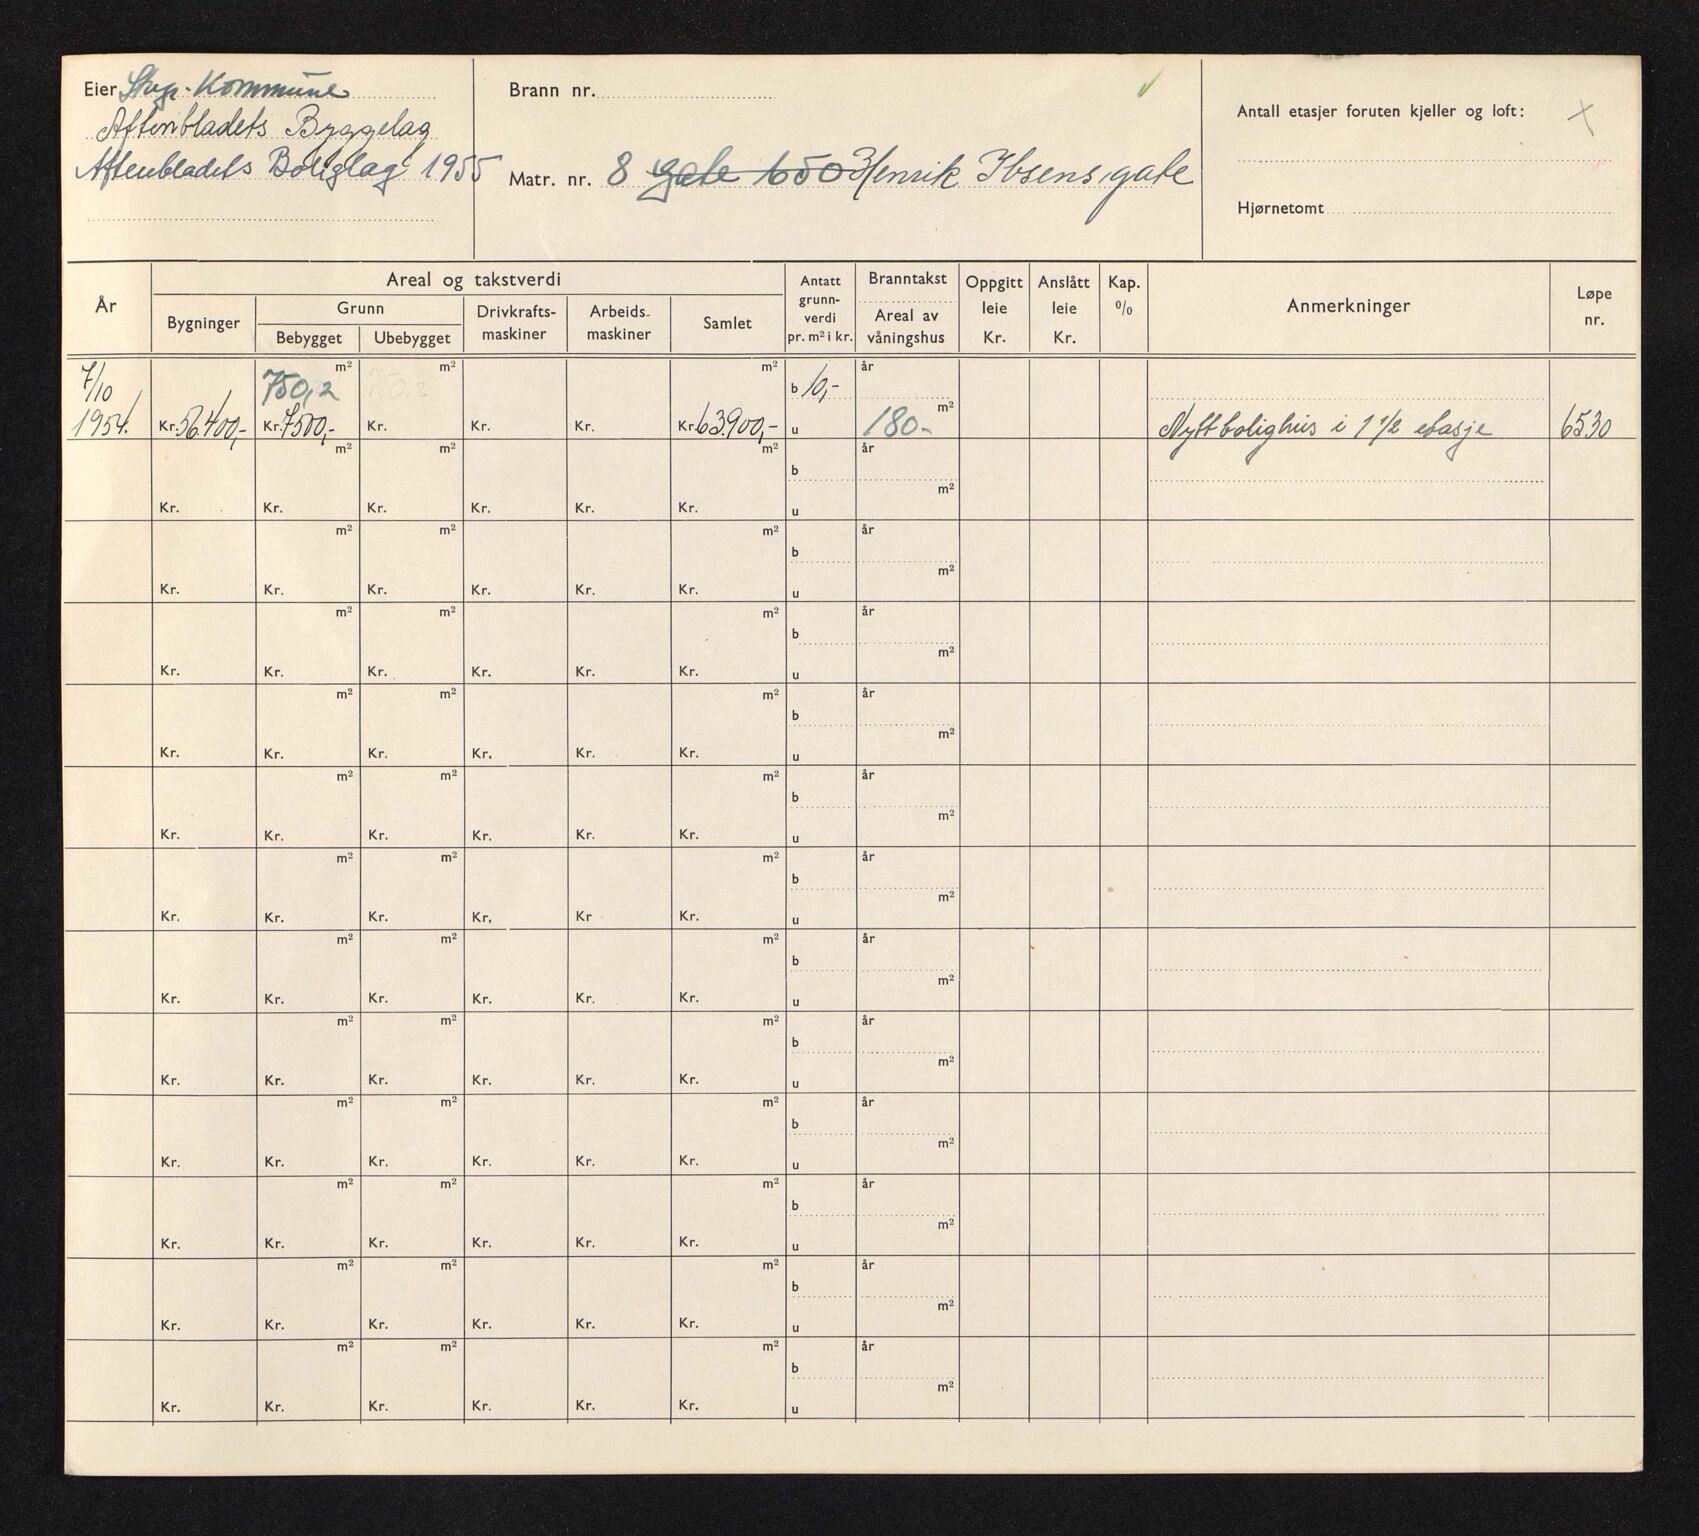 Eier Stvgr. Kommune
Aftenbladets Byggelag
Aftenbladets Boliglag 1955
Brann nr.
Matr. nr. 8 gate 650 Henrik Ibsens gate
Antall etasjer foruten kjeller og loft: X
Hjørnetomt
År
Areal og takstverdi
Bygninger
Grunn
Bebygget Ubebygget
Drivkrafts-
maskiner
Arbeids-
maskiner
Samlet
Antatt
grunn-
verdi
pr. m² i kr.
Branntakst
Areal av
våningshus
Oppgitt
leie
Kr.
Anslått
leie
Kr.
Kap.
%
Anmerkninger
Løpe
nr.
7/10 750,2 m² 750,2 m² m² b 10,- år
1954. Kr. 56.400,- Kr. 7500,- Kr. Kr. Kr. Kr. 63.900,- u 180.- m² Nytt bolighus i 1 1/2 etasje 6530
m² m² m² b år
Kr. Kr. Kr. Kr. Kr. Kr. u m²
m² m² m² b år
Kr. Kr. Kr. Kr. Kr. Kr. u m²
m² m² m² b år
Kr. Kr. Kr. Kr. Kr. Kr. u m²
m² m² m² b år
Kr. Kr. Kr. Kr. Kr. Kr. u m²
m² m² m² b år
Kr. Kr. Kr. Kr. Kr. Kr. u m²
m² m² m² b år
Kr. Kr. Kr. Kr. Kr Kr. u m²
m² m² m² b år
Kr. Kr. Kr. Kr. Kr. Kr. u m²
m² m² m² b år
Kr. Kr. Kr. Kr. Kr. Kr. u m²
m² m² m² b år
Kr. Kr. Kr. Kr. Kr. Kr. u m²
m² m² m² b år
Kr. Kr. Kr. Kr. Kr. Kr. u m²
m² m² m² b år
Kr. Kr. Kr. Kr. Kr. Kr. u m²
m² m² m² b år
Kr. Kr. Kr. Kr. Kr. Kr. u m²